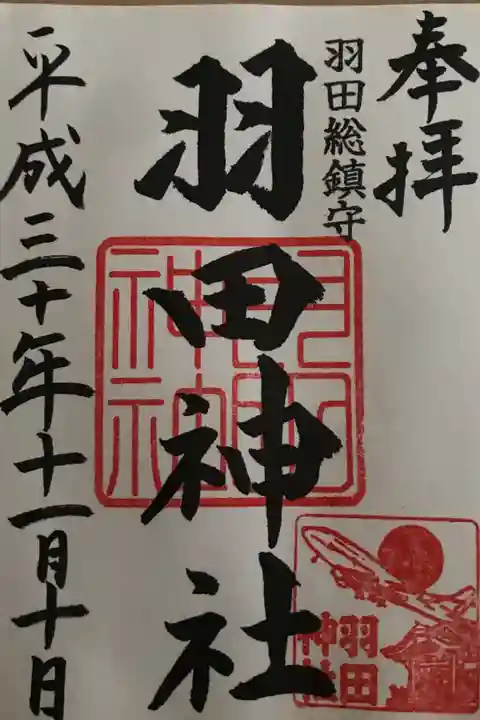 奉拝
羽田総鎮守
羽田神社
平成三十年十一月十日
羽田
神社